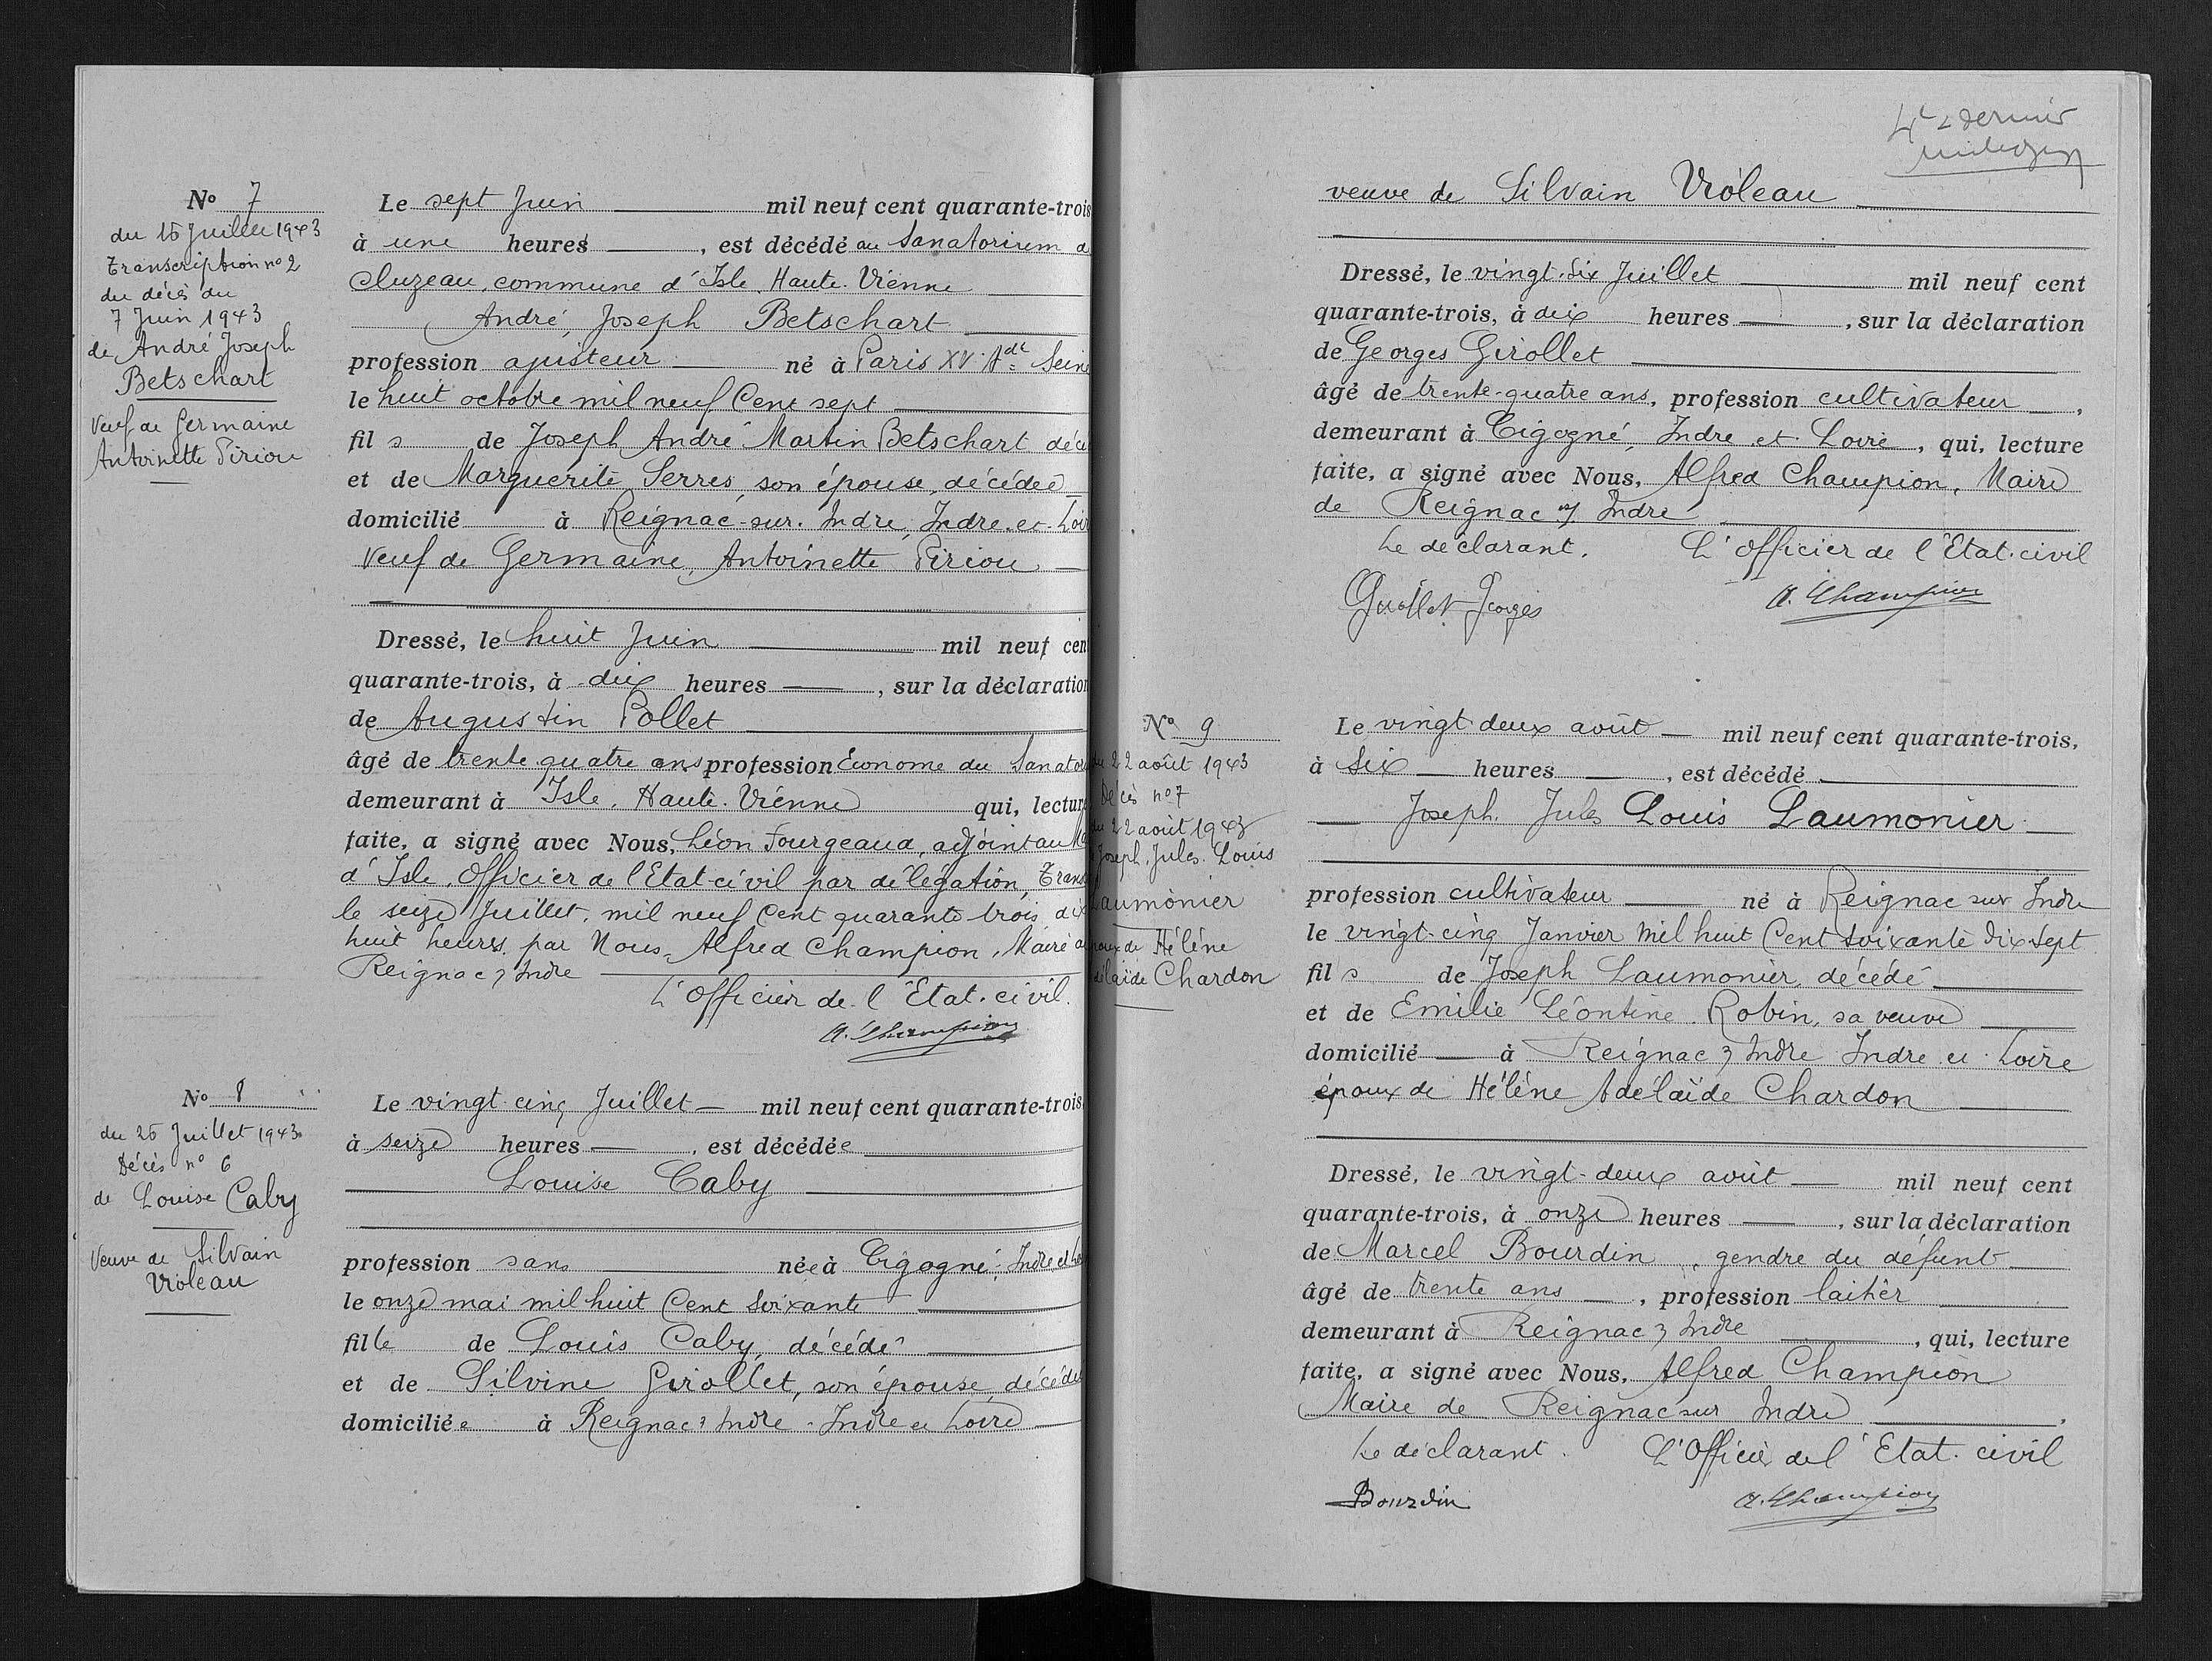 No 7
du 16 Juillet 1943
Transcription no 2
du décès du
7 Juin 1943
de André Joseph
Betschart
Veuf de Germaine
Antoinette Piriou
Le sept Juin mil neuf cent quarante-trois
à une heures, est décédé au Sanatorium
Cluzeau, commune d'Isle, Haute-Vienne
André, Joseph Betschart
profession ajusteur né à Paris XV Adt Seine
le huit octobre mil neuf Cent sept
fils de Joseph André Martin Betschart
et de Marguerite Serres, son épouse, décédée
domicilié à Reignac-sur-Indre, Indre-et-Loir
Veuf de Germaine, Antoinette Piriou
Dressé, le huit Juin mil neuf cen
quarante-trois, à dix heures, sur la déclaration
de Augustin Pollet
âgé de trente quatre ans profession Econome du Sanato
demeurant à Isle, Haute-Vienne qui, lecture
faite, a signé avec Nous, Léon Fourgeaud, adjoint au
d'Isle, Officier de l'Etat-civil par délégation, Trans
le seize Juillet, mil neuf Cent quarante trois, dix
huit heures, par Nous, Alfred Champion, Maire
Reignac s/ Indre
L'Officier de l'Etat-civil.
A. Champion
No 8
du 26 Juillet 1943
Décès no 6
de Louise Caby
Veuve de Silvain
Violeau
Le vingt-cinq Juillet mil neuf cent quarante-trois
à seize heures, est décédée
Louise Caby
profession sans née à Cigogné, Indre et
le onze mai mil huit Cent soixante
fille de Louis Caby, décédé
et de Silvine Girollet, son épouse, décédée
domiciliée à Reignac s/ Indre - Indre et Loire
veuve de Silvain Violeau
Dressé, le vingt-six Juillet mil neuf cent
quarante-trois, à dix heures, sur la déclaration
de Georges Girollet
âgé de trente-quatre ans, profession cultivateur,
demeurant à Cigogné, Indre et Loire, qui, lecture
faite, a signé avec Nous, Alfred Champion, Maire
de Reignac s/ Indre
Le déclarant. L'Officier de l'Etat-civil
Girollet Georges A. Champion
No 9
du 22 août 1943
Décès no 7
du 22 août 1943
Joseph, Jules, Louis
Laumonier
époux de Hélène
Adélaïde Chardon
Le vingt deux août mil neuf cent quarante-trois,
à six heures, est décédé
Joseph, Jules Louis Laumonier
profession cultivateur né à Reignac sur Indre
le vingt-cinq Janvier mil huit Cent soixante dix sept
fils de Joseph Laumonier, décédé
et de Emilie Léontine Robin, sa veuve
domicilié à Reignac s/ Indre Indre et Loire
époux de Hélène Adélaïde Chardon
Dressé, le vingt-deux août mil neuf cent
quarante-trois, à onze heures, sur la déclaration
de Marcel Bourdin, gendre du défunt
âgé de trente ans, profession laitier
demeurant à Reignac s/ Indre, qui, lecture
faite, a signé avec Nous, Alfred Champion
Maire de Reignac sur Indre
Le déclarant. L'Officier de l'Etat-civil
Bourdin A. Champion